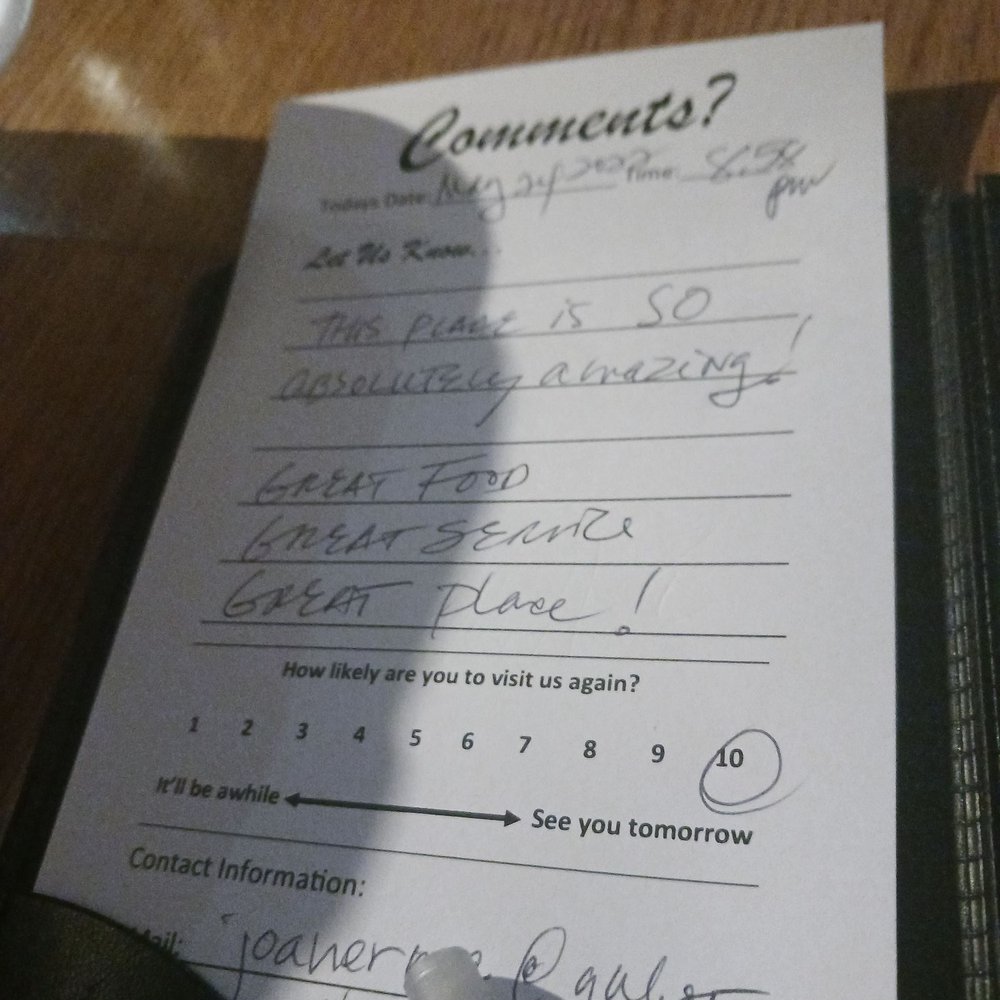 Comments?
Todays Date: May 24 2022 Time: 8:58 pm
Let Us Know...
THIS PLACE is SO
ABSOLUTELY amazing!
GREAT FOOD
GREAT SERVICE
GREAT place!
How likely are you to visit us again?
1 2 3 4 5 6 7 8 9 10
It'll be awhile See you tomorrow
Contact Information: